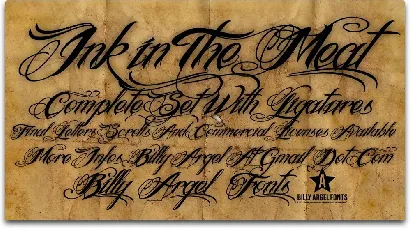 Ink in The Meat
Complete Set With Ligatures
Final Letters Scrolls And Commercial Licenses Available
More Infos Billy Argel At Gmail Dot Com
Billy Argel Fonts
BILLY ARGEL FONTS